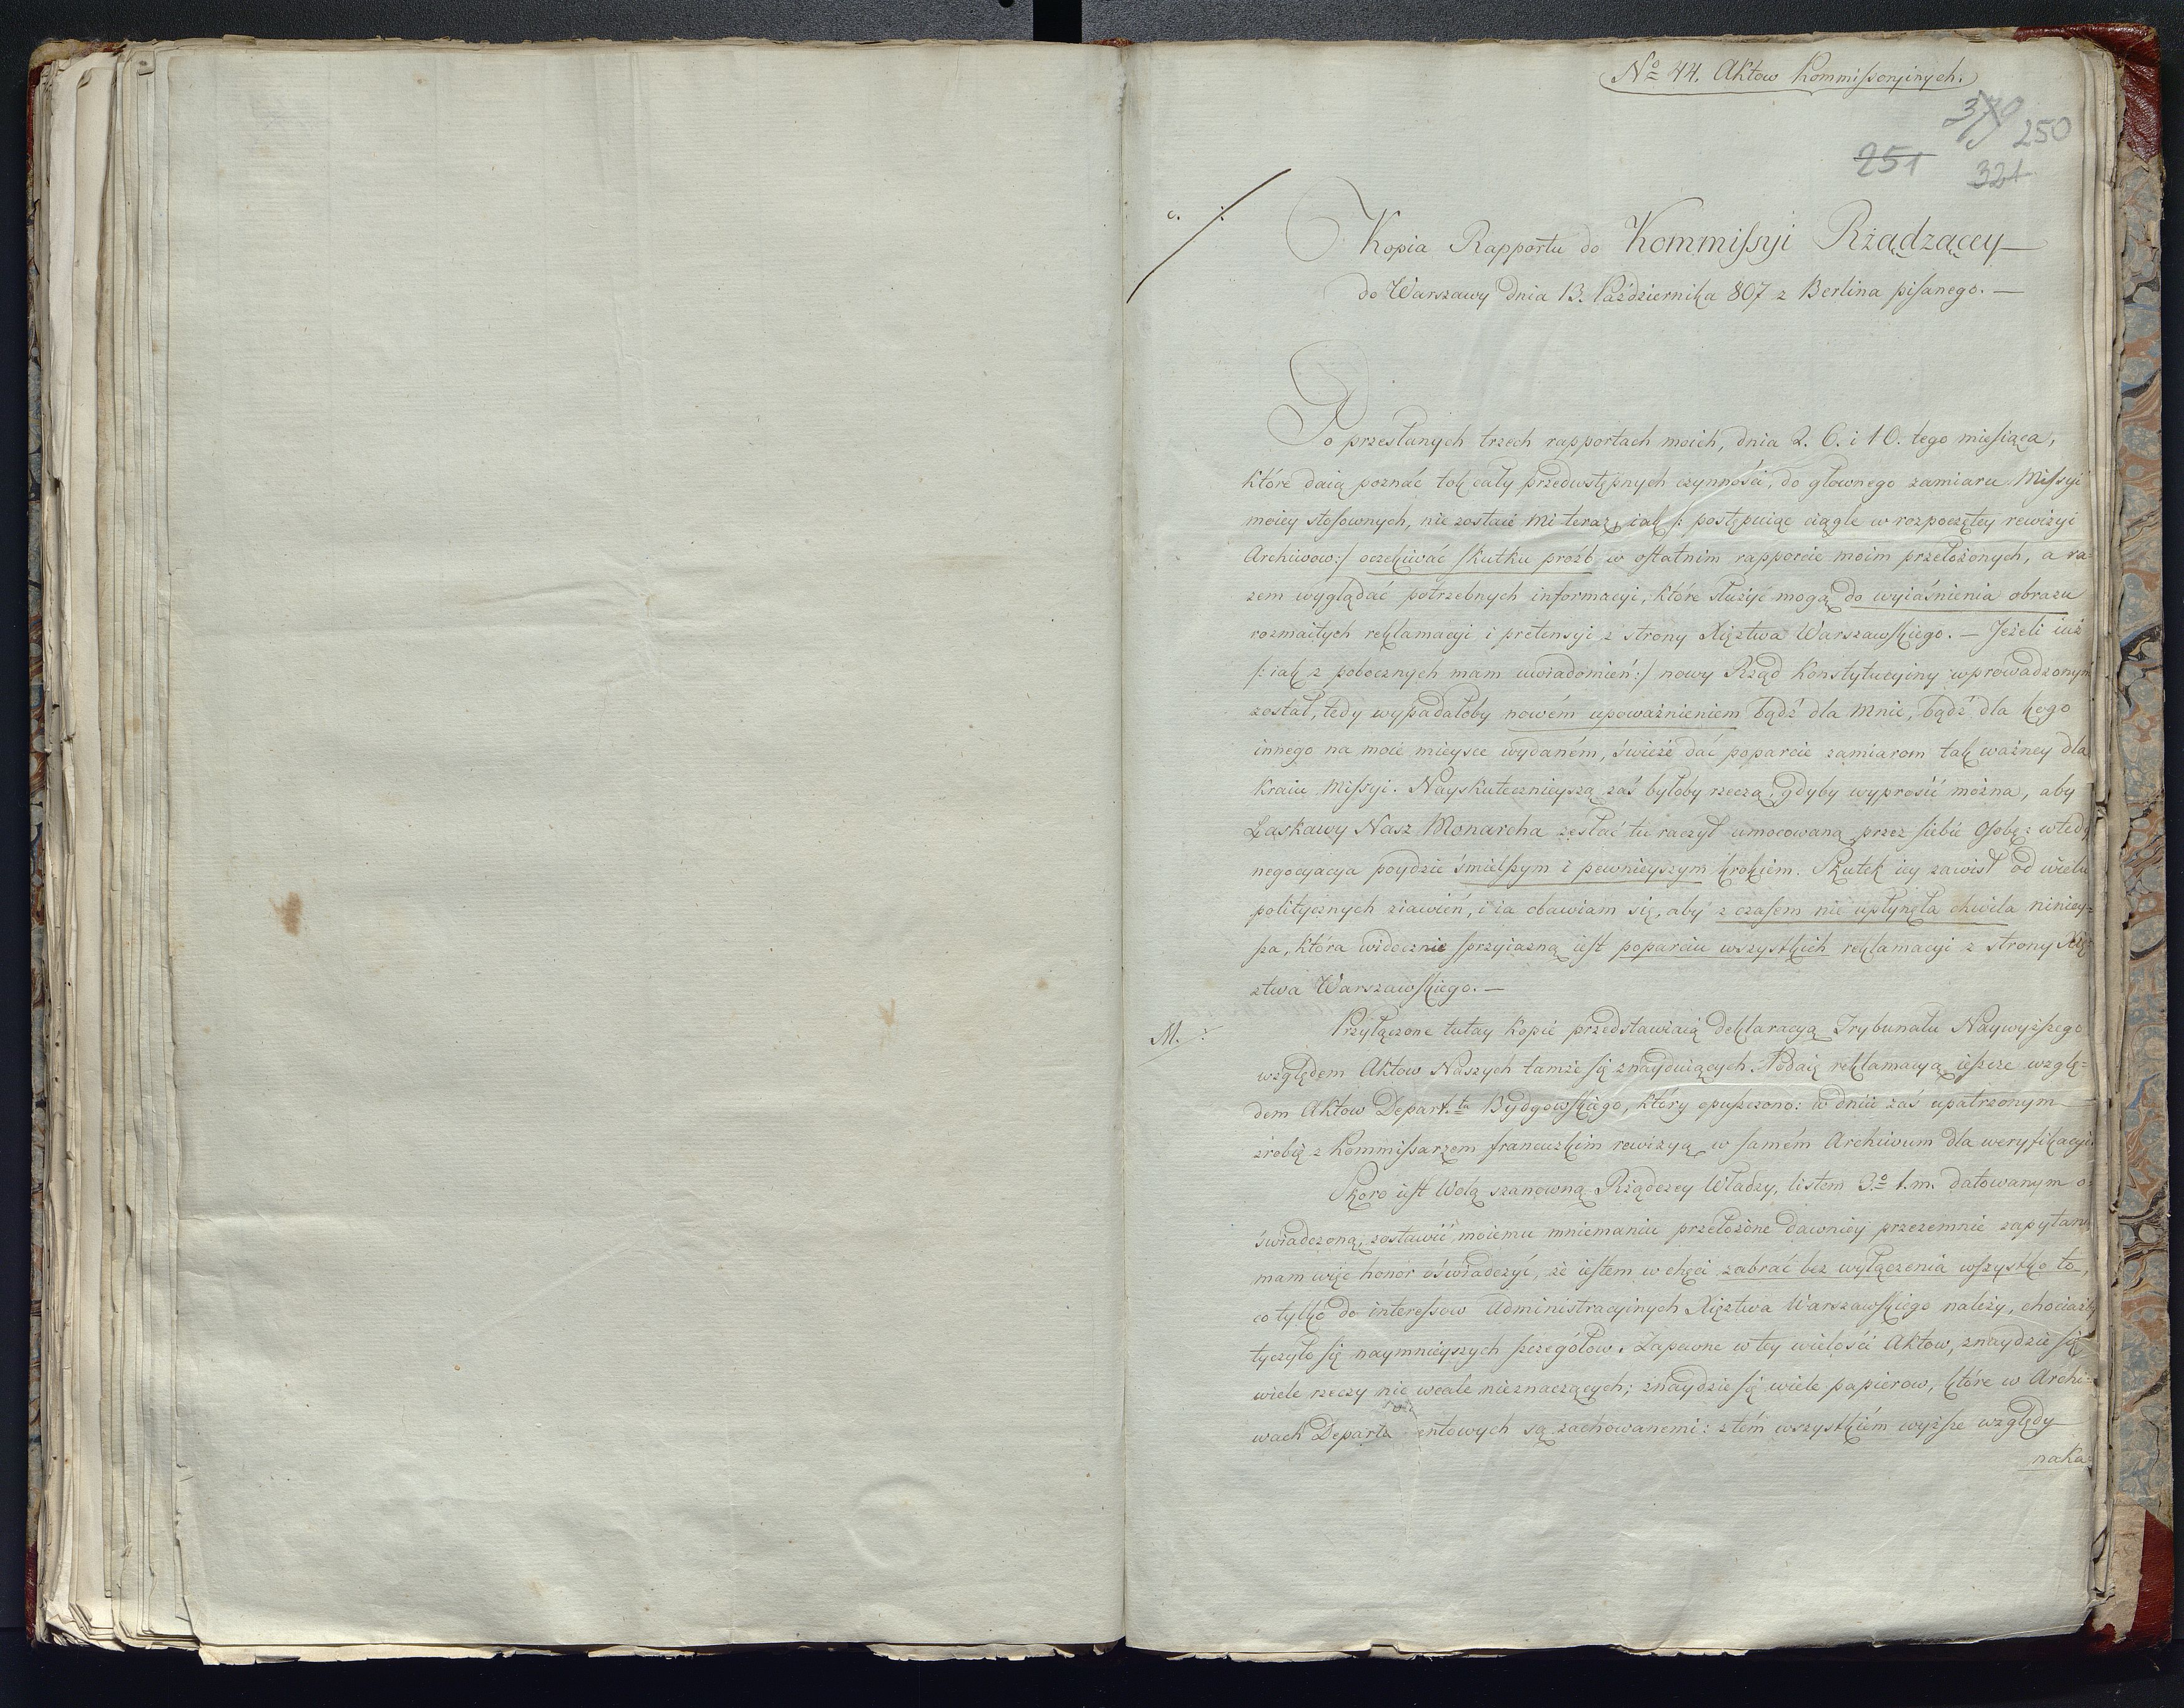 No 44. Aktow Kommissyinych.
370 250
251 321
c. :
Kopia Rapportu do Kommissyi Rządzącey
do Warszawy dnia 13. Października 807 z Berlina pisanego. —
Po przesłanych trzech rapportach moich, dnia 2. 6. i 10. tego miesiąca,
które daią poznać tok cały przedwstępnych czynności, do głownego zamiaru Missyi
moiey stosownych, nie zostaie mi teraz, iak /: postępuiąc ciągle w rozpoczętey rewizyi
Archiwow :/ oczekiwać skutku proźb w ostatnim rapporcie moim przełożonych, a ra-
zem wyglądać potrzebnych informacyi, które służyć mogą do wyiaśnienia obrazu
rozmaitych reklamacyi i pretensyi z strony Xięztwa Warszawskiego. — Jeżeli iuż
/: iak z pobocznych mam uwiadomień :/ nowy Rząd Konstytucyiny wprowadzonym
został, tedy wypadałoby nowém upoważnieniem bądź dla mnie, bądź dla kogo
innego na moie mieysce wydaném, świeże dać poparcie zamiarom tak ważney dla
Kraiu Missyi. Nayskutecznieyszą zaś byłoby rzeczą, gdyby wyprosić można, aby
Łaskawy Nasz Monarcha zesłać tu raczył umocowaną przez siebie Osobę: wtedy
negocyacya poydzie śmielszym i pewnieyszym krokiem. Skutek iey zawisł od wielu
politycznych ziawień, i ia obawiam się, aby z czasem nie upłynęła chwila niniey-
sza, która widocznie sprzyiazną iest poparciu wszystkich reklamacyi z strony Xię-
ztwa Warszawskiego. —
M. :
Przyłączone tutay kopie przedstawiaią deklaracyą Trybunału Naywyższego
względem Aktow Naszych tamże się znayduiących. Podaię reklamacyą ieszcze wzglę-
dem Aktow Depart.tu Bydgowskiego, który opuszczono: w dniu zaś upatrzonym
zrobię z Kommissarzem francuzkim rewizyą w samém Archiwum dla weryfikacyi.
Skoro iest Wolą szanowną Rządczey Władzy, listem 3o t.m. datowanym o-
świadczoną, zostawić moiemu mniemaniu przełożone dawniey przezemnie zapytan
mam więc honor oświadczyć, że iestem w chęci zabrać bez wyłączenia wszystko to,
co tylko do interessow Administracyinych Xięztwa Warszawskiego należy, chociażby
tyczyło się naymnieyszych szczegółow. Zapewne w tey wielości Aktow, znaydzie się
wiele rzeczy nic wcale nieznaczących; znaydzie się wiele papierow, które w Archi-
wach Departa entowych są zachowanemi: z tém wszystkiém wyższe względy
naka-